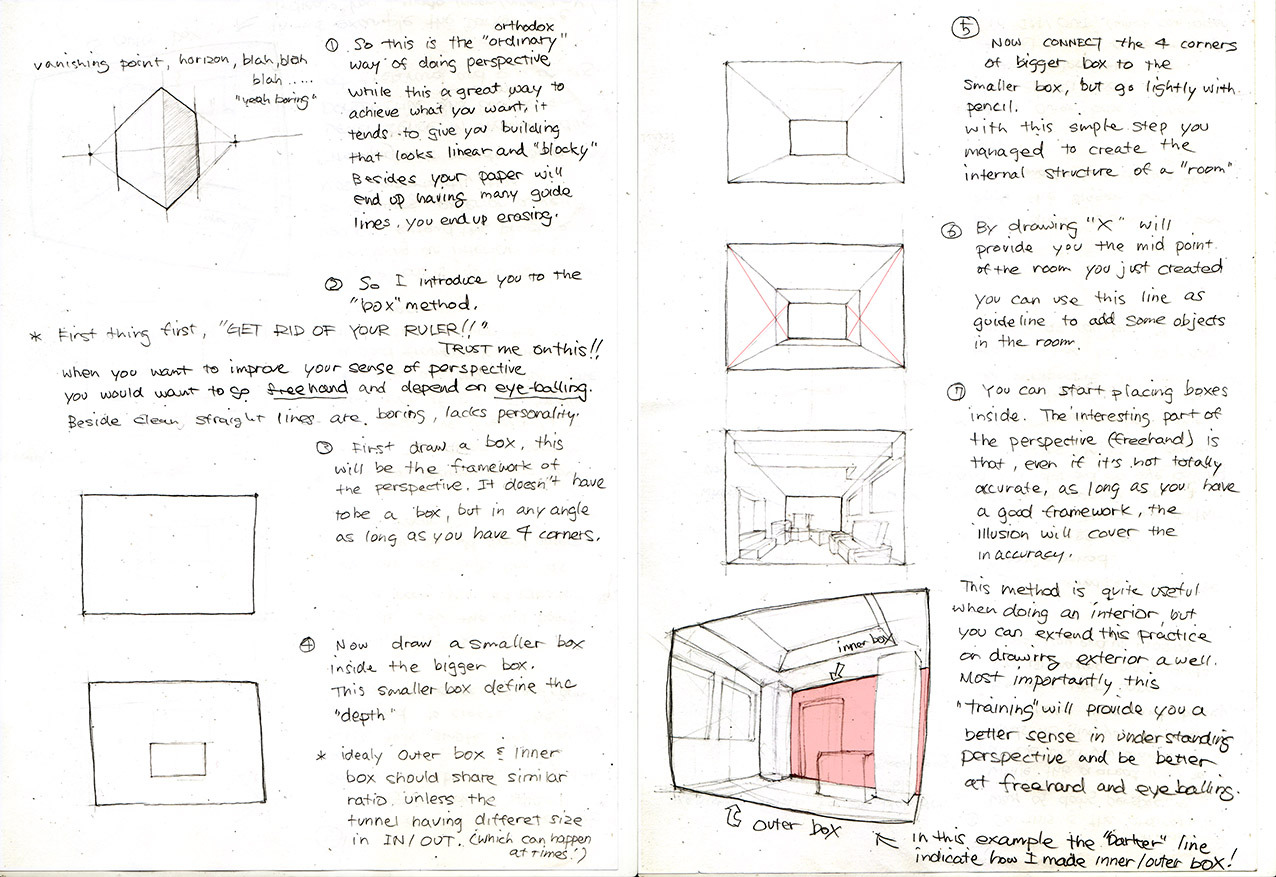 vanishing point, horizon, blah, blah
blah .....
"yeah boring"
orthodox
① So this is the "ordinary".
way of doing perspective
while this a great way to
achieve what you want, it
tends to give you building
that looks linear and "blocky"
Besides your paper will
end up having many guide
lines, you end up erasing.
② So I introduce you to the
"box" method.
* First thing first, "GET RID OF YOUR RULER!!"
TRUST me on this!!
when you want to improve your sense of perspective
you would want to go freehand and depend on eye-balling.
Beside clean, straight lines are boring, lacks personality.
③ First draw a box, this
will be the framework of
the perspective. It doesn't have
to be a box, but in any angle
as long as you have 4 corners.
④ Now draw a smaller box
inside the bigger box.
This smaller box define the
"depth"
* idealy outer box & inner
box should share similar
ratio unless the
tunnel having differet size
in IN/OUT. (which can happen
at times!)
⑤
Now CONNECT the 4 corners
of bigger box to the
smaller box, but go lightly with
pencil.
with this smple step you
managed to create the
internal structure of a "room"
⑥ By drawing "X" will
provide you the mid point
of the room you just created
you can use this line as
guideline to add some objects
in the room.
⑦ You can start placing boxes
inside. The interesting part of
the perspective (freehand) is
that, even if it's not totally
accurate, as long as you have
a good framework, the
illusion will cover the
inaccuracy.
This method is quite useful
when doing an interior, but
you can extend this practice
on drawing exterior a well.
Most importantly this
"training" will provide you a
better sense in understanding
perspective and be better
at freehand and eyeballing.
inner box
outer box
in this example the "Darker" line
indicate how I made inner/outer box!